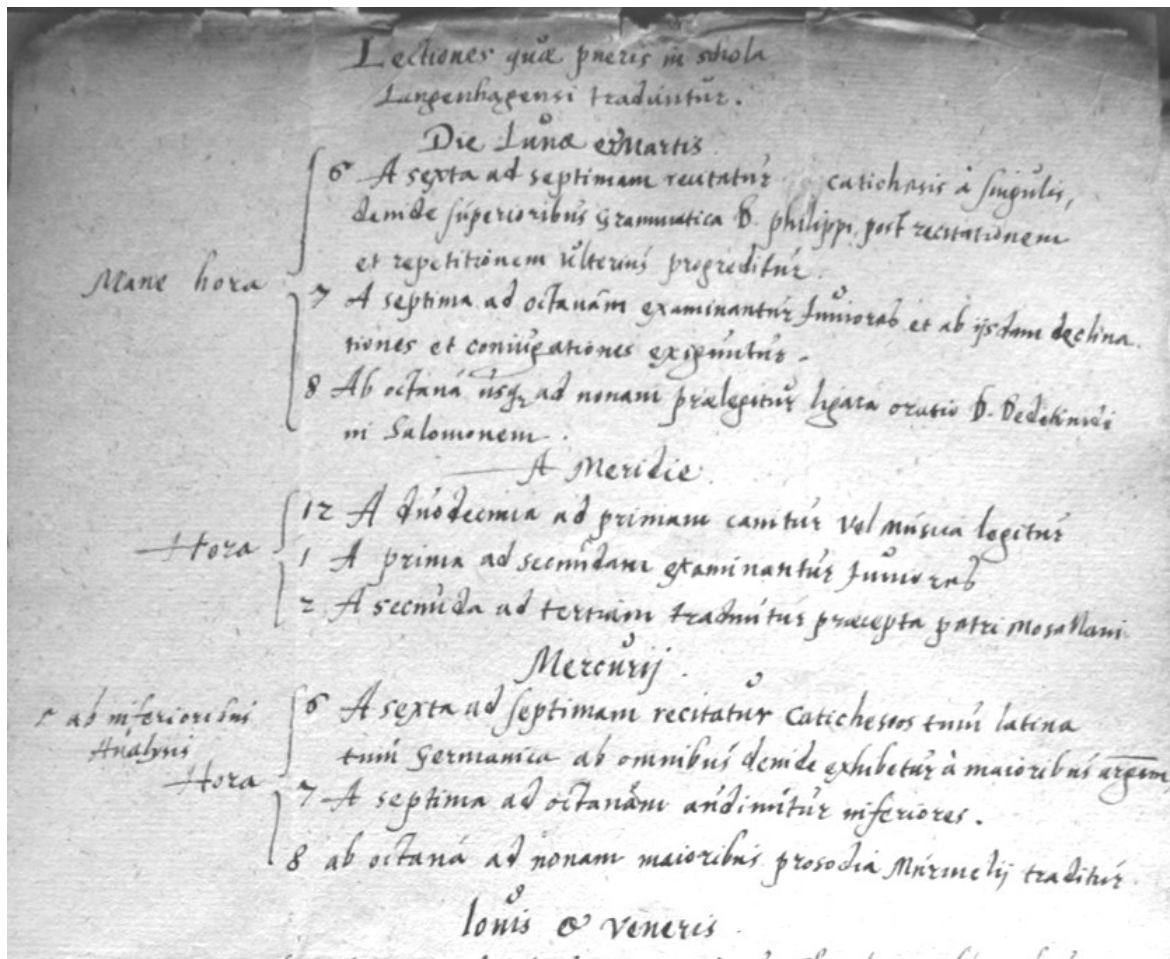 Lectiones quæ pueris in schola
Langenhagensi traduntur.
Die Lunæ et Martis
6 A sexta ad septimam recitatur catichesis à singulis,
deinde superioribus Grammatica D. philippi, post recitationem
et repetitionem ulterius progreditur.
Mane hora
7 A septima ad octavam examinantur Juniores et ab ijsdem declina
tiones et coniugationes exiguntur.
8 Ab octava usq ad nonam prælegitur ligata oratio D. Bedekindi
in Salomonem.
A Meridie
12 A duodecima ad primam canitur vel musica legitur
Hora
1 A prima ad secundam examinantur Juniores
2 A secunda ad tertiam traduntur præcepta petri Mosellani
Mercurij.
6 A sexta ad septimam recitatur Catichesios tum latina
ab inferioribus
Analysis
tum Germanica ab omnibus deinde exhibetur à maioribus argum
Hora
7 A septima ad octavam audiuntur inferiores.
8 ab octava ad nonam maioribus prosodia Murmelij traditur
Iouis & veneris